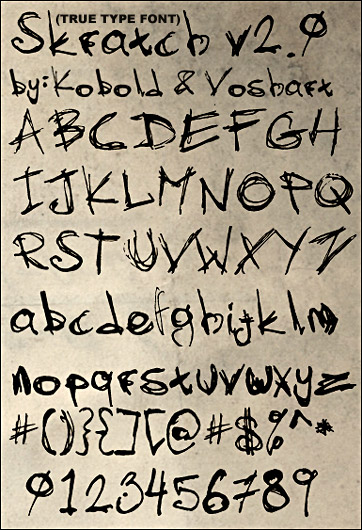 (TRUE TYPE FONT)
Skratch v2.0
by: Kobold & Voshart
ABCDEFGH
IJKLMNOPQ
RSTUVWXYZ
abcdefghijklm
nopqrstuvwxyz
#(){}[][@#$%^*
0123456789